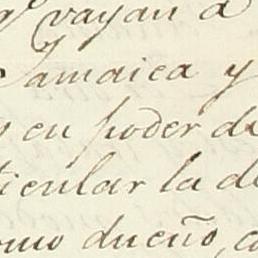 vayan a
Jamaica y
en poder de
ticular la de
omo dueño, a